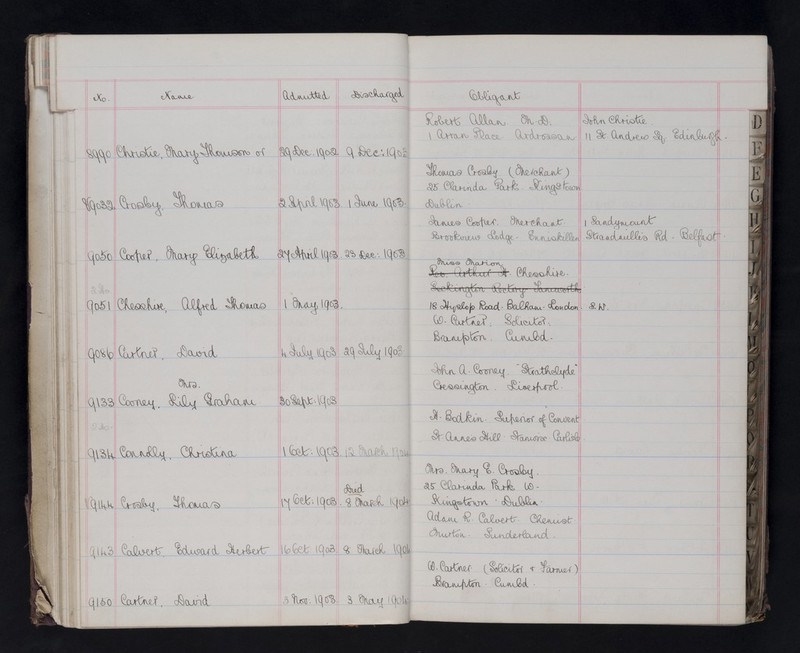 No. Name Admitted Discharged Obligant
Robert Allan M.D. John Christie
1 Arran Place Ardrossan 11 St Andrew Sq Edinburgh.
8990 Christie, Mary Thomson or 29 Dec. 1902 9 Dec: 1903
Thomas Crosby (Merchant)
25 Clarinda Park Kingstown
9032 Crosby Thomas 2 April 1903 1 June 1903 Dublin
James Cooper. Merchant 1 Sandymount
Brookview Lodge. Enniskillen Strandmillis Rd. Belfast.
9050 Cooper. Mary Elizabeth 27 April 1903 23 Dec: 1903
Miss Marion
Leo Arthur Cheshire.
Seckington Rectory Tamworth
9051 Cheshire, Alfred Thomas 1 May 1903. 18 Hyslop Road. Balham. London. S.W.
W. Cartner. Solicitor.
Brampton. Cumbd.
9086 Cartner. David 4 July 1903 29 July 1903
John A. Cooney. "Strathclyde"
Mrs. Cressington. Liverpool
9133 Cooney. Lily Graham 30 Sept. 1903
H. Bodkin. Superior of Convent
St Annes Hill Stanwix Carlisle.
9134 Connolly. Christina 1 Oct. 1903 12 March 1904
Mrs. Mary E. Crosby.
Died 25 Clarinda Park W.
9144 Crosby. Thomas 17 Oct. 1903. 8 March 1904 Kingstown. Dublin
Adam R. Calvert. Chemist
Murton. Sunderland.
9143 Calvert. Edward Herbert 16 Oct 1903 8 March 1904
W. Cartner (Solicitor & Farmer)
Brampton. Cumbd.
9160 Cartner. David 3 Nov. 1903 3 May 1904
D
F
E
G
H
I
J